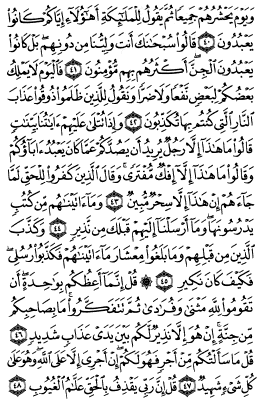 وَيَوْمَ يَحْشُرُهُمْ جَمِيعًا ثُمَّ يَقُولُ لِلْمَلَٰٓئِكَةِ أَهَٰٓؤُلَآءِ إِيَّاكُمْ كَانُوا۟
يَعْبُدُونَ ۝٤٠ قَالُوا۟ سُبْحَٰنَكَ أَنتَ وَلِيُّنَا مِن دُونِهِم ۖ بَلْ كَانُوا۟
يَعْبُدُونَ ٱلْجِنَّ ۖ أَكْثَرُهُم بِهِم مُّؤْمِنُونَ ۝٤١ فَٱلْيَوْمَ لَا يَمْلِكُ
بَعْضُكُمْ لِبَعْضٍ نَّفْعًا وَلَا ضَرًّا وَنَقُولُ لِلَّذِينَ ظَلَمُوا۟ ذُوقُوا۟ عَذَابَ
ٱلنَّارِ ٱلَّتِى كُنتُم بِهَا تُكَذِّبُونَ ۝٤٢ وَإِذَا تُتْلَىٰ عَلَيْهِمْ ءَايَٰتُنَا بَيِّنَٰتٍ
قَالُوا۟ مَا هَٰذَآ إِلَّا رَجُلٌ يُرِيدُ أَن يَصُدَّكُمْ عَمَّا كَانَ يَعْبُدُ ءَابَآؤُكُمْ
وَقَالُوا۟ مَا هَٰذَآ إِلَّآ إِفْكٌ مُّفْتَرًى ۚ وَقَالَ ٱلَّذِينَ كَفَرُوا۟ لِلْحَقِّ لَمَّا
جَآءَهُمْ إِنْ هَٰذَآ إِلَّا سِحْرٌ مُّبِينٌ ۝٤٣ وَمَآ ءَاتَيْنَٰهُم مِّن كُتُبٍ
يَدْرُسُونَهَا ۖ وَمَآ أَرْسَلْنَآ إِلَيْهِمْ قَبْلَكَ مِن نَّذِيرٍ ۝٤٤ وَكَذَّبَ
ٱلَّذِينَ مِن قَبْلِهِمْ وَمَا بَلَغُوا۟ مِعْشَارَ مَآ ءَاتَيْنَٰهُمْ فَكَذَّبُوا۟ رُسُلِى ۖ
فَكَيْفَ كَانَ نَكِيرِ ۝٤٥ ۞ قُلْ إِنَّمَآ أَعِظُكُم بِوَٰحِدَةٍ ۖ أَن
تَقُومُوا۟ لِلَّهِ مَثْنَىٰ وَفُرَٰدَىٰ ثُمَّ تَتَفَكَّرُوا۟ ۚ مَا بِصَاحِبِكُم
مِّن جِنَّةٍ ۚ إِنْ هُوَ إِلَّا نَذِيرٌ لَّكُم بَيْنَ يَدَىْ عَذَابٍ شَدِيدٍ ۝٤٦
قُلْ مَا سَأَلْتُكُم مِّنْ أَجْرٍ فَهُوَ لَكُمْ ۖ إِنْ أَجْرِىَ إِلَّا عَلَى ٱللَّهِ ۖ وَهُوَ عَلَىٰ
كُلِّ شَىْءٍ شَهِيدٌ ۝٤٧ قُلْ إِنَّ رَبِّى يَقْذِفُ بِٱلْحَقِّ عَلَّٰمُ ٱلْغُيُوبِ ۝٤٨